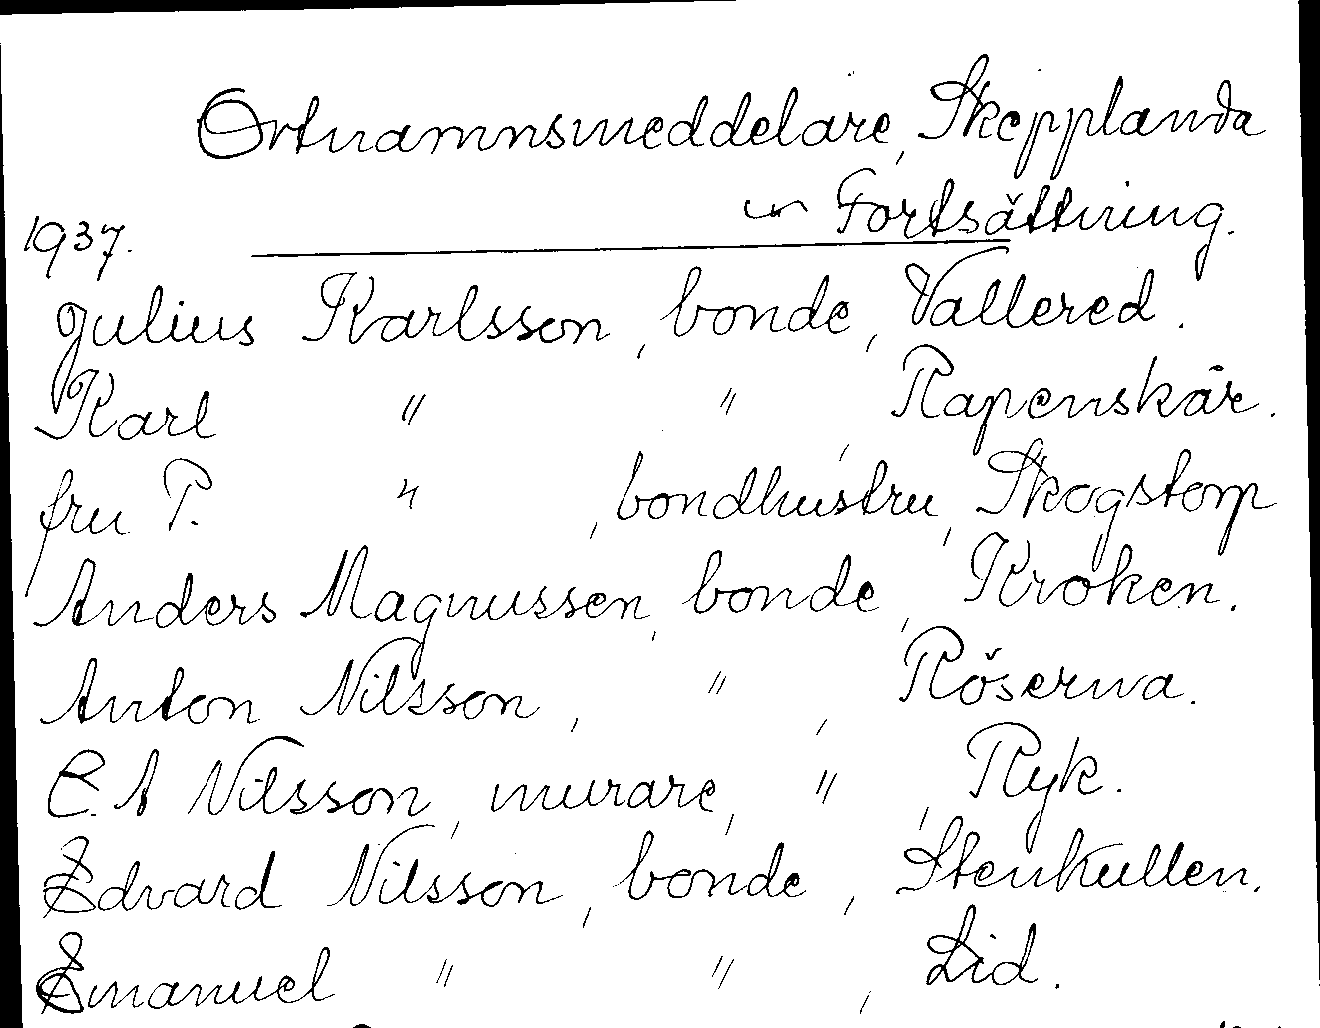 Ortnamnsmeddelare, Skepplanda
Fortsättning.
1937.
Julius Karlsson, bonde, Vallered.
Karl " " Rapenskär.
fru P. " , bondhustru, Skogstorp
Anders Magnussen, bonde, Kroken.
Anton Nilsson, " , Röserna.
C. A Nilsson, murare, " , Ryk.
Edvard Nilsson, bonde, Stenkullen.
Emanuel " " , Lid.